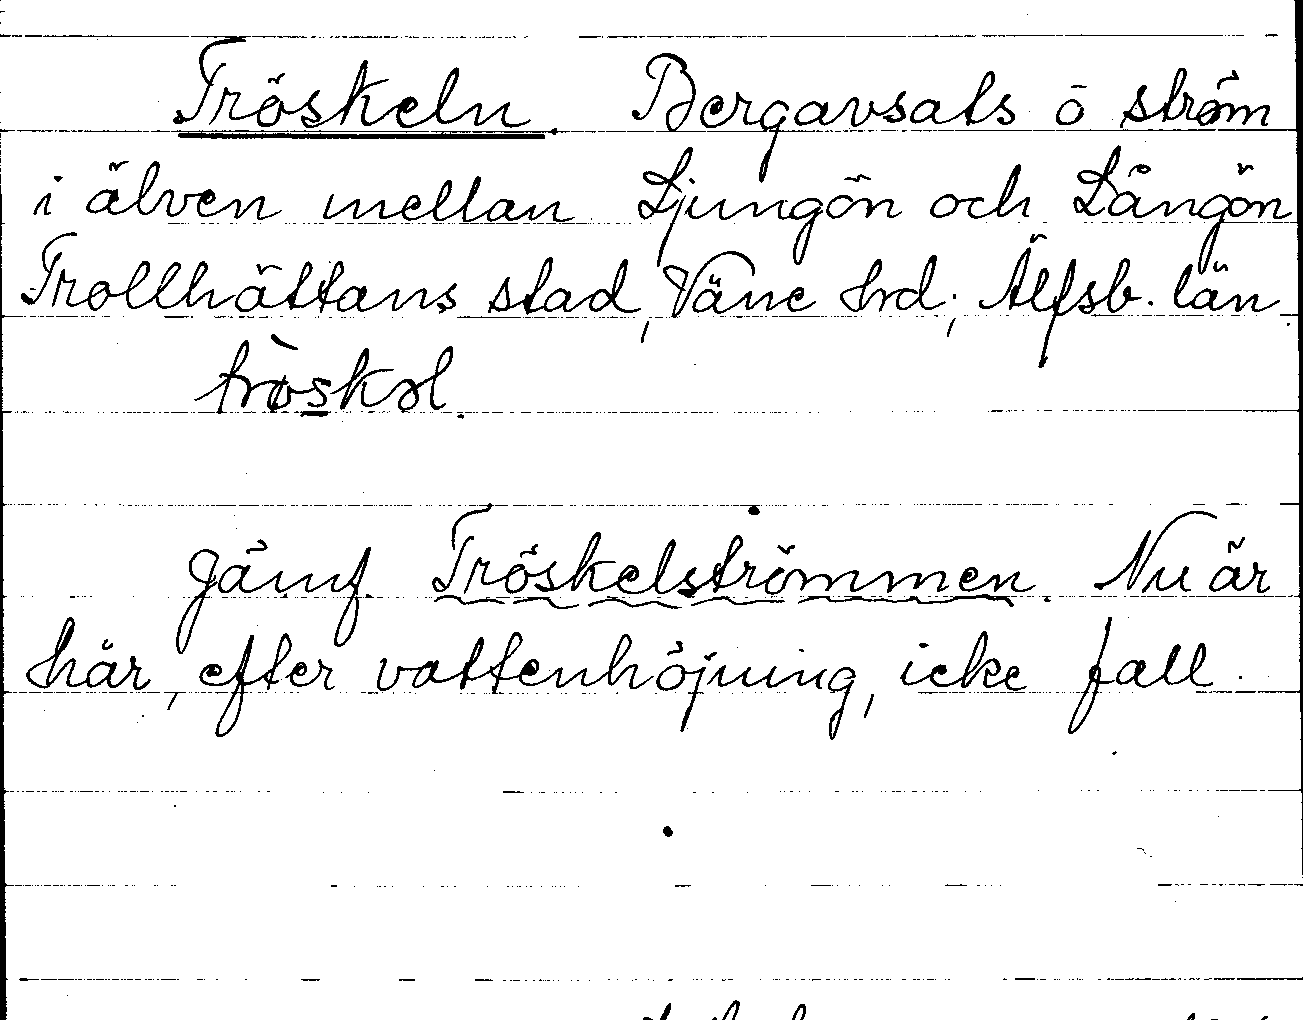 Tröskeln. Bergavsats o ström
i älven mellan Ljungön och Långön
Trollhättans stad, Väne hrd; Älfsb. län.
tròskəl.
Jämf. Tröskelströmmen. Nu är
här, efter vattenhöjning, icke fall.